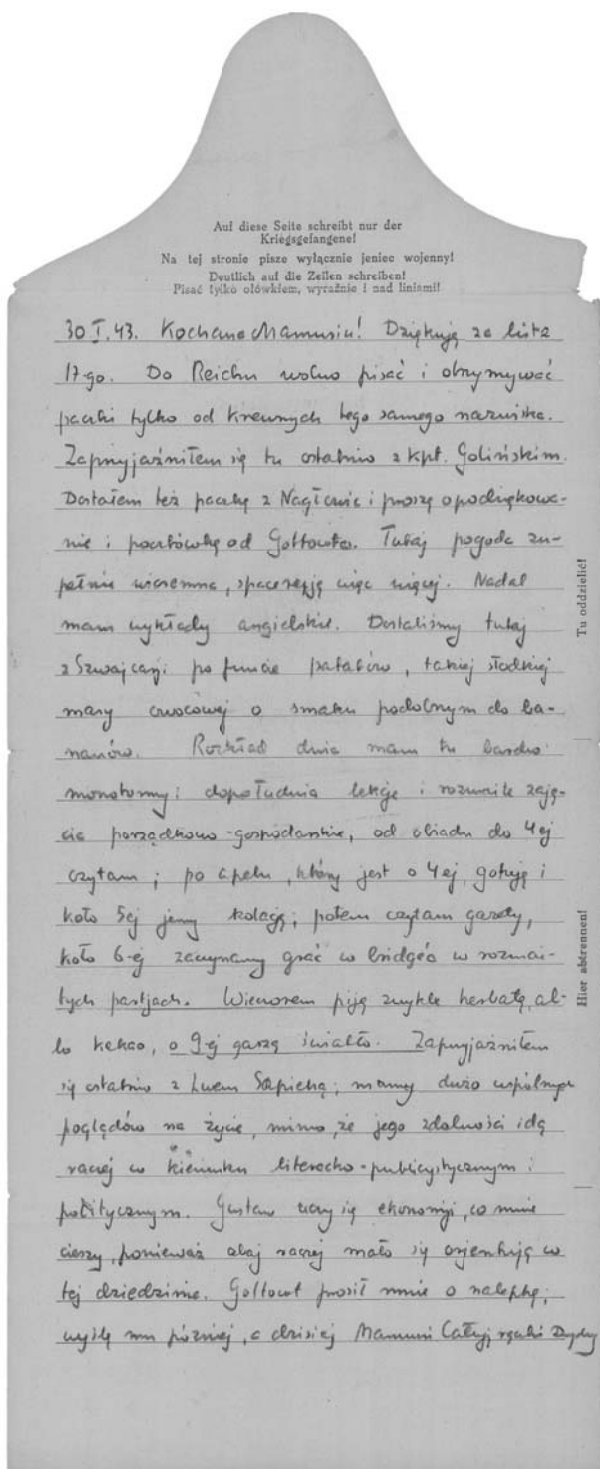 Auf diese Seite schreibt nur der
Kriegsgefangene!
Na tej stronie pisze wyłącznie jeniec wojenny!
Deutlich auf die Zeilen schreiben!
Pisać tylko ołówkiem, wyraźnie i nad liniami!
30 I. 43. Kochana Mamusiu! Dziękuję za list z
17-go. Do Reichu wolno pisać i otrzymywać
paczki tylko od krewnych tego samego nazwiska.
Zaprzyjaźniłem się tu ostatnio z kpt. Golińskim.
Dostałem też paczkę z Nagłowic i proszę o podziękowa-
nie i pocztówkę od Gottowta. Tutaj pogoda zu-
pełnie wiosenna, spaceruję więc więcej. Nadal
mam wykłady angielskie. Dostaliśmy tutaj
z Szwajcarji po funcie , takiej słodkiej
masy owocowej o smaku podobnym do ba-
nanów. Rozkład dnia mam tu bardzo
monotonny: dopołudnia lekcje i rozmaite zaję-
cia porządkowo-gospodarskie, od obiadu do 4ej
czytam; po apelu, który jest o 4ej, gotuję i
koło 5ej jemy kolację; potem czytam gazety,
koło 6-ej zaczynamy grać w bridge'a w rozmai-
tych partjach. Wieczorem piję zwykle herbatę, al-
bo kakao, o 9-ej gaszą światło. Zaprzyjaźniłem
się ostatnio z Lwem Sapiehą; mamy dużo wspólnych
poglądów na życie, mimo, że jego zdolności idą
raczej w kierunku literacko-publicystycznym i
politycznym. Gustaw uczy się ekonomji, co mnie
cieszy, ponieważ obaj raczej mało się orjentują w
tej dziedzinie. Gottowt prosił mnie o nalepkę;
wyślę mu później, a dzisiaj Mamuni Całuję rączki
Tu oddzielić!
Hier abtrennen!